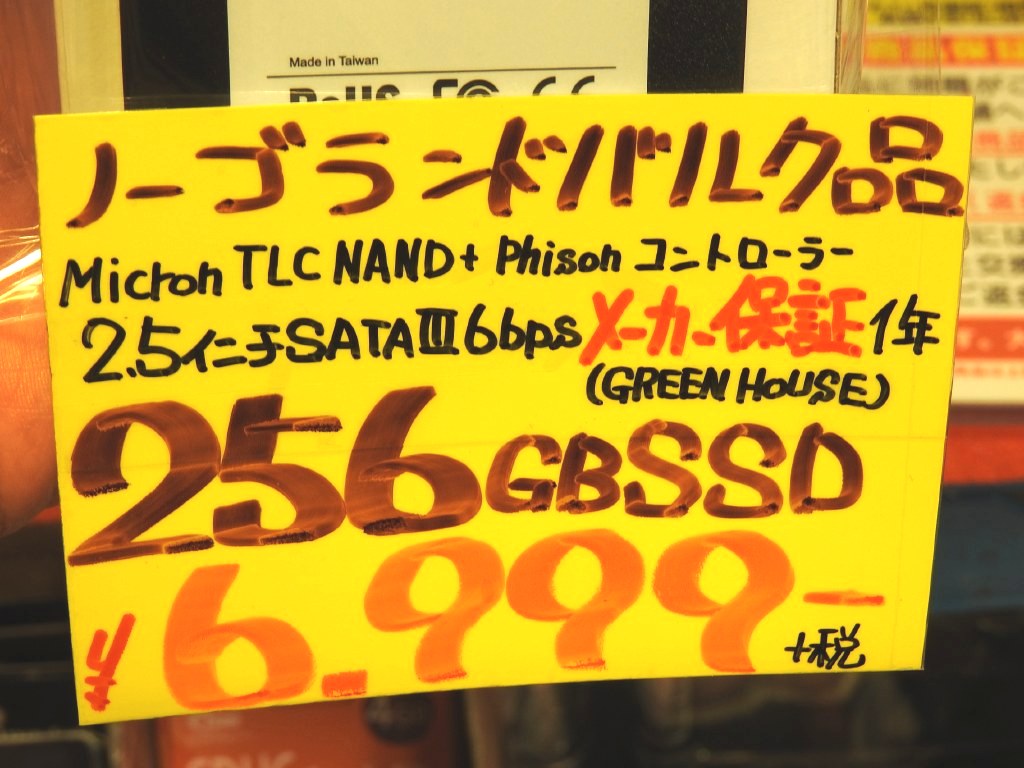 Made in Taiwan
RoHS FC CE
ノーブランドバルク品
Micron TLC NAND+ Phison コントローラー
2.5インチSATAⅢ6bps メーカー保証1年
(GREEN HOUSE)
256GBSSD
¥6.999-
+税